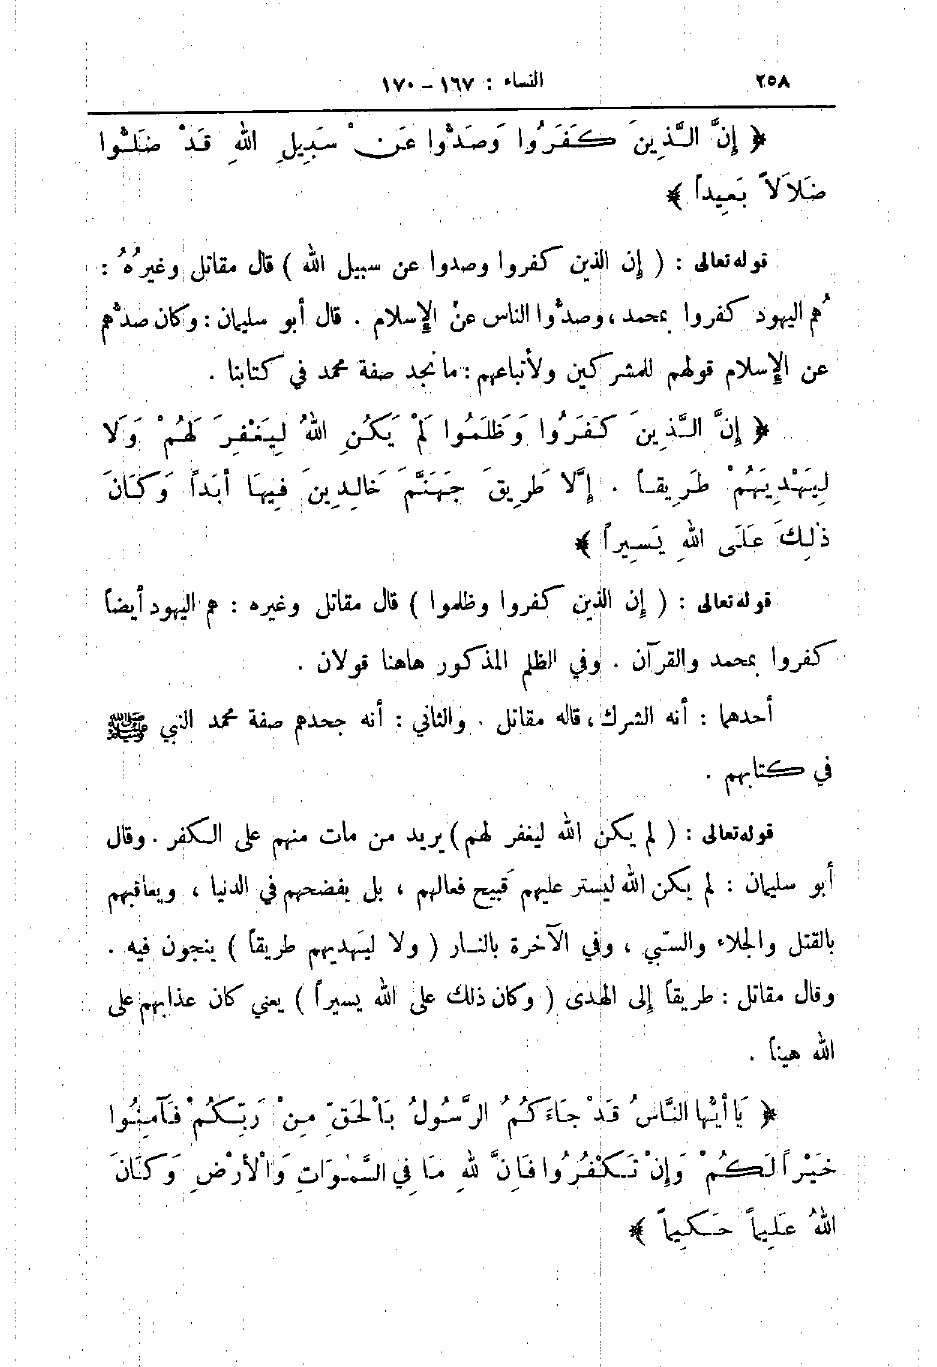 ٢٥٨ النساء : ١٦٧ – ١٧٠
﴿ إِنَّ الَّذِينَ كَفَرُوا وَصَدُّوا عَنْ سَبِيلِ اللهِ قَدْ ضَلُّوا
ضَلاَلاً بَعِيداً ﴾
قوله تعالى : ( إن الذين كفروا وصدوا عن سبيل الله ) قال مقاتل وغيرُهُ :
هُم اليهود كفروا بمحمد ، وصدُّوا الناس عنْ الإسلام . قال أبو سليمان : وكان صدُّهم
عن الإسلام قولهم للمشركين ولأتباعهم : ما نجد صفة محمد في كتابنا .
﴿ إِنَّ الَّذِينَ كَفَرُوا وَظَلَمُوا لَمْ يَكُنِ اللهُ لِيَغْفِرَ لَهُمْ وَلَا
لِيَهْدِيَهُمْ طَرِيقاً . إِلَّا طَرِيقَ جَهَنَّمَ خَالِدِينَ فِيهَا أَبَداً وَكَانَ
ذٰلِكَ عَلَى اللهِ يَسِيراً ﴾
قوله تعالى : ( إن الذين كفروا وظلموا ) قال مقاتل وغيره : هم اليهود أيضاً
كفروا بمحمد والقرآن . وفي الظلم المذكور هاهنا قولان .
أحدهما : أنه الشرك ، قاله مقاتل . والثاني : أنه جحدهم صفة محمد النبي ﷺ
في كتابهم .
قوله تعالى : ( لم يكن الله ليغفر لهم ) يريد من مات منهم على الكفر . وقال
أبو سليمان : لم يكن الله ليستر عليهم قَبيح فعالهم ، بل يفضحهم في الدنيا ، ويعاقبهم
بالقتل والجلاء والسّبي ، وفي الآخرة بالنار ( ولا ليهديهم طريقاً ) ينجون فيه .
وقال مقاتل : طريقاً إلى الهدى ( وكان ذلك على الله يسيراً ) يعني كان عذابهم على
الله هيناً .
﴿ يَا أَيُّهَا النَّاسُ قَدْ جَاءَكُمُ الرَّسُولُ بِالْحَقِّ مِنْ رَبِّكُمْ فَآمِنُوا
خَيْراً لَكُمْ وَإِنْ تَكْفُرُوا فَإِنَّ لِلهِ مَا فِي السَّمٰوَاتِ وَالْأَرْضِ وَكَانَ
اللهُ عَلِيماً حَكِيماً ﴾